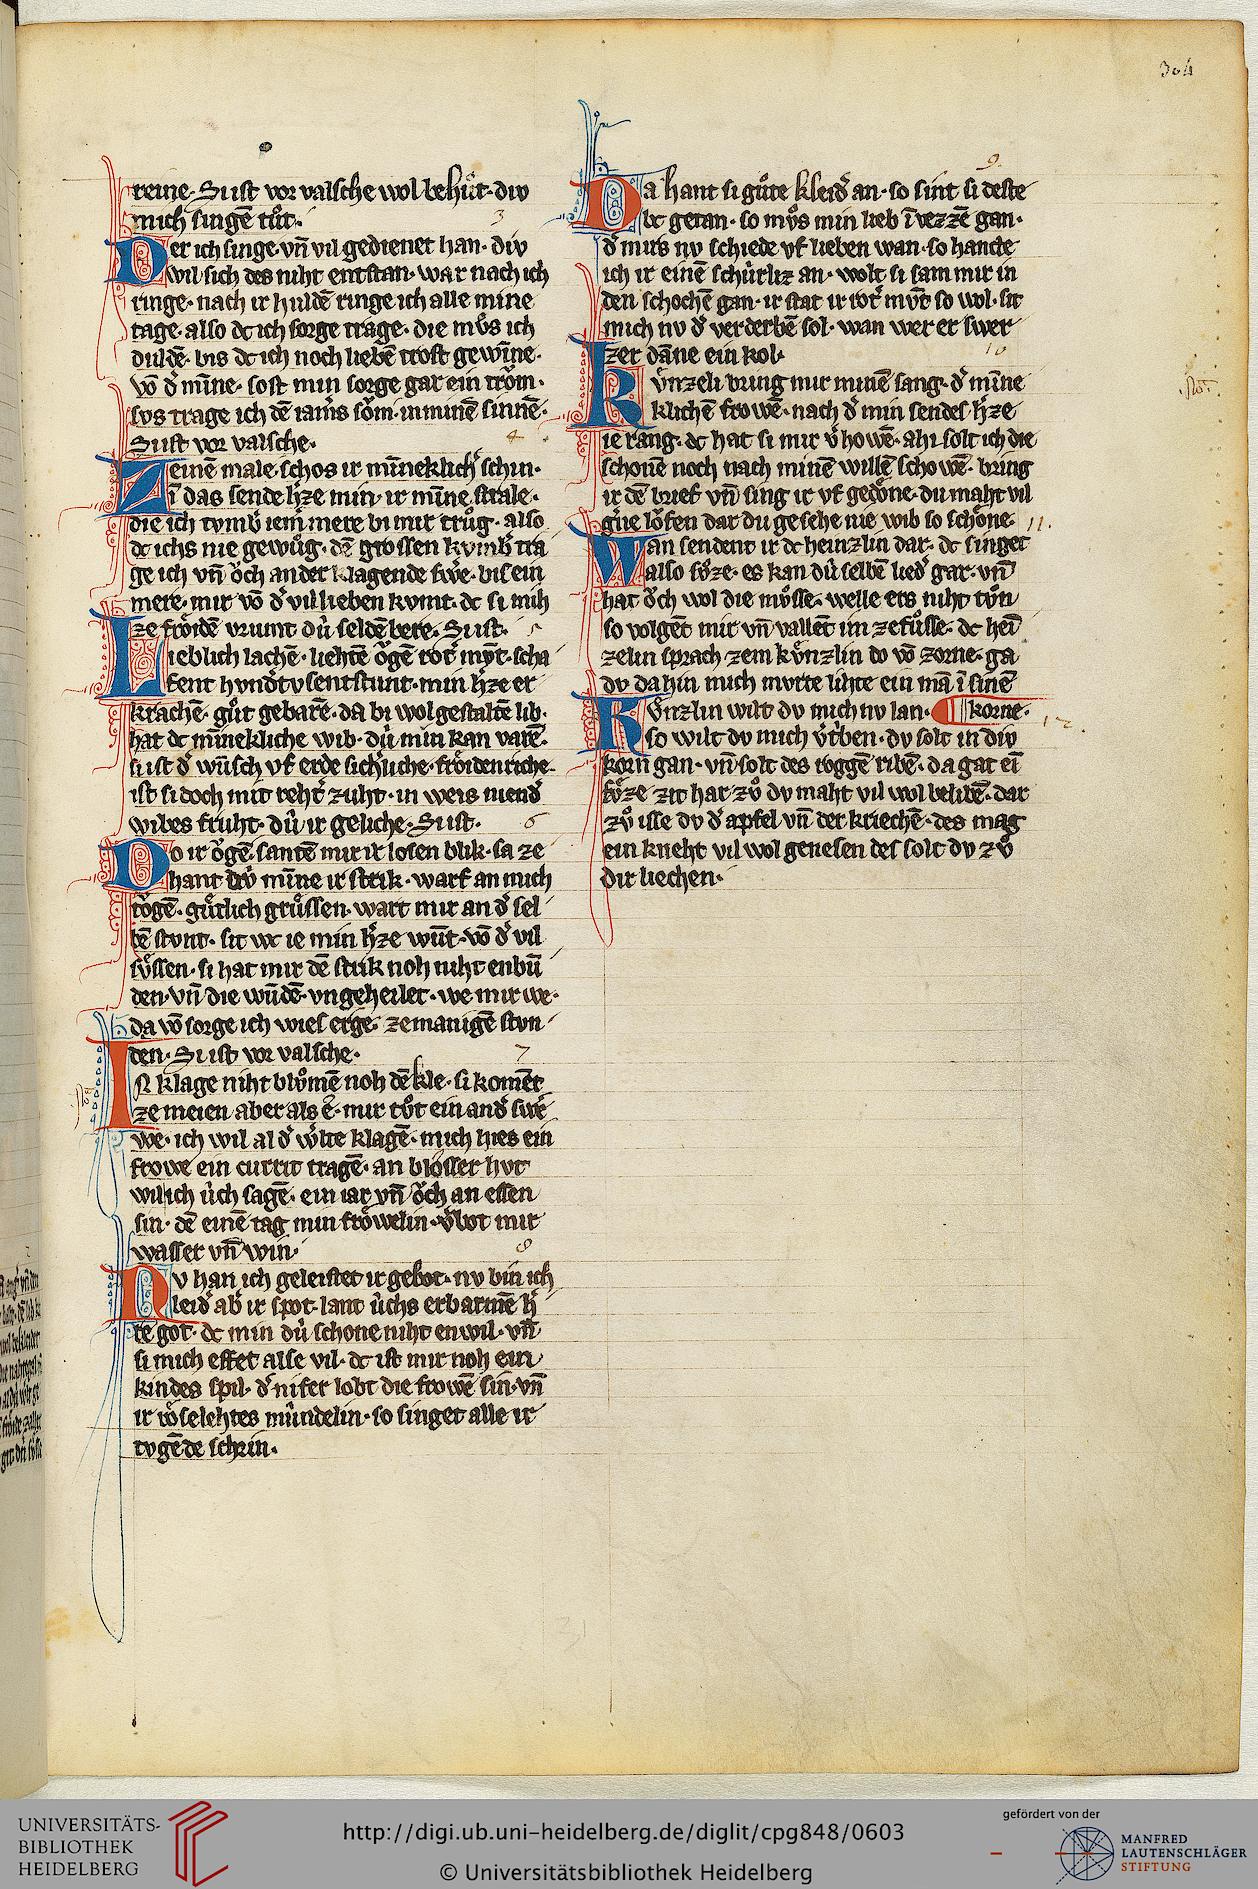 304
reine. Si ist vor valsche wol behuͤt. div
mich singē tuͦt.
3
Der ich singe. vn̄ vil gedienet han. div
wil sich des niht entstan. war nach ich
ringe. nach ir huldē ringe ich alle mine
tage. also dc ich sorge trage. die mvͦs ich
duldē. bis dc ich noch liebē trost gewīne.
vō d̾ mīne. sost min sorge gar ein troͮm.
svs trage ich dē iamͤs soͮm. in minē sinnē.
Si ist vor valsche.
4
Zeinē male. schos ir mīneklich̾ schin.
ī das sende h̾ze min. ir mīne strale.
die ich tvmb̾ iem̾ mere bi mir truͦg. also
dc ichs nie gewuͦg. dē grossen kvmb̾ tra
ge ich vn̄ oͮch ander klagende swͤe. bis ein
mere. mir vō d̾ vil lieben kvmt. dc si mih
ze froͤidē vrumt dv̂ seldēbere. Si ist.
5
Lieblich lachē. liehtē oͮgē rot̾ mvͦt. scha
fent hvnd̾tvsentstunt. min h̾ze er
krachē. guͦt gebarē. da bi wol gestaltē lib.
hat dc mīnekliche wib. dv̂ min kan varē.
si ist d̾ wūsch vf erde sichliche. froͤidenriche
ist si doch mit reht̾ zuht. in weis niend̾
wibes fruht. dv̂ ir geliche. Si ist.
6
Do ir oͮgē santē mir ir losen blik. sa ze
hant div mīne ir strik. warf an mich
toͮgē. guͤtlich gruͤssen. wart mir an d̾ sel
bē stvnt. sit wc ie min h̾ze wūt. vō d̾ vil
suͤssen. si hat mir dē strik noh niht enbū
den. vn̄ die wūdē. vngeheilet. we mir we.
da vō sorge ich wiel erge. ze manigē stvn
den. Si ist vor valsche.
7
IN klage niht bluͦmē noh dē kle. si komēt
ze meien aber als ē. mir tuͦt ein and̾ swͤe
we. ich wil al d̾ wͤlte klagē. mich hies ein
frowe ein currit tragē. an blosser hvt
wil ich v̂ch sagē. ein iar vn̄ oͮch an essen
sin. dē einē tag min froͤwelin. v̾bot mir
wasser vn̄ win.
8
Nv han ich geleistet ir gebot. nv bin ich
leid̾ ab̾ ir spot. lant v̂chs erbarmē h̾
re got. dc min dv̂ schone niht enwil. vn̄
si mich effet alse vil. dc ist mir noh ein
kindes spil. d̾ nifer lobt die frowē sin. vn̄
ir roͤselehtes mv̂ndelin. so singet alle ir
tvgēde schrin.
9.
Da hant si guͤte kleid̾ an. so sint si deste
bc getan. so mvͦs min lieb ī vezzē gan.
d̾ mus nv schiede vf lieben wan. so hancte
ich ir einē schv̂rliz an. wolt si sam mir in
den schochē gan. ir stat ir rot̾ mvͦt so wol. sit
mich nv d̾ verderbē sol. wan wer er swer
zer dāne ein kol.
10
Kv̂nzeli bring mir minē sang. d̾ mīne
klichē frowē. nach d̾ min sendes h̾ze
ie rang. dc hat si mir v̾howē. ahi solt ich die
schonē noch nach minē willē schowē. bring
ir dē brief vn̄ sing ir vf gedoͤne. du maht vil
g̾ne losen dar du gesehe nie wib so schoͤne.
11.
Wan sendent ir dc heinzlin dar. dc singet
also suͦze. es kan dv̂ selbē lied̾ gar. vn̄
hat oͮch wol die mvͦsse. welle ers niht tvͦn
so volgēt mir vn̄ vallēt im ze fuͦsse. dc hei
zelin sprach zem kv̂nzlin do vō zorne. ga
dv dahin mich mvrte lihte ein mā ī sinē
korne.
12
Kv̂nzlin wilt dv mich nv lan.
so wilt dv mich v̾t̾ben. dv solt in div
korn gan. vn̄ solt des roggē ribē. da gat ei
kv̂ze zit har zvͦ dv maht vil wol belibē. dar
zvͦ isse dv d̾ apfel vn̄ der kriechē. des mag
ein kneht vil wol genesen des solt dv zvͦ
dir liechen.
UNIVERSITÄTS-
BIBLIOTHEK
HEIDELBERG
http://digi.ub.uni-heidelberg.de/diglit/cpg848/0603
© Universitätsbibliothek Heidelberg
gefördert von der
MANFRED
LAUTENSCHLÄGER
STIFTUNG